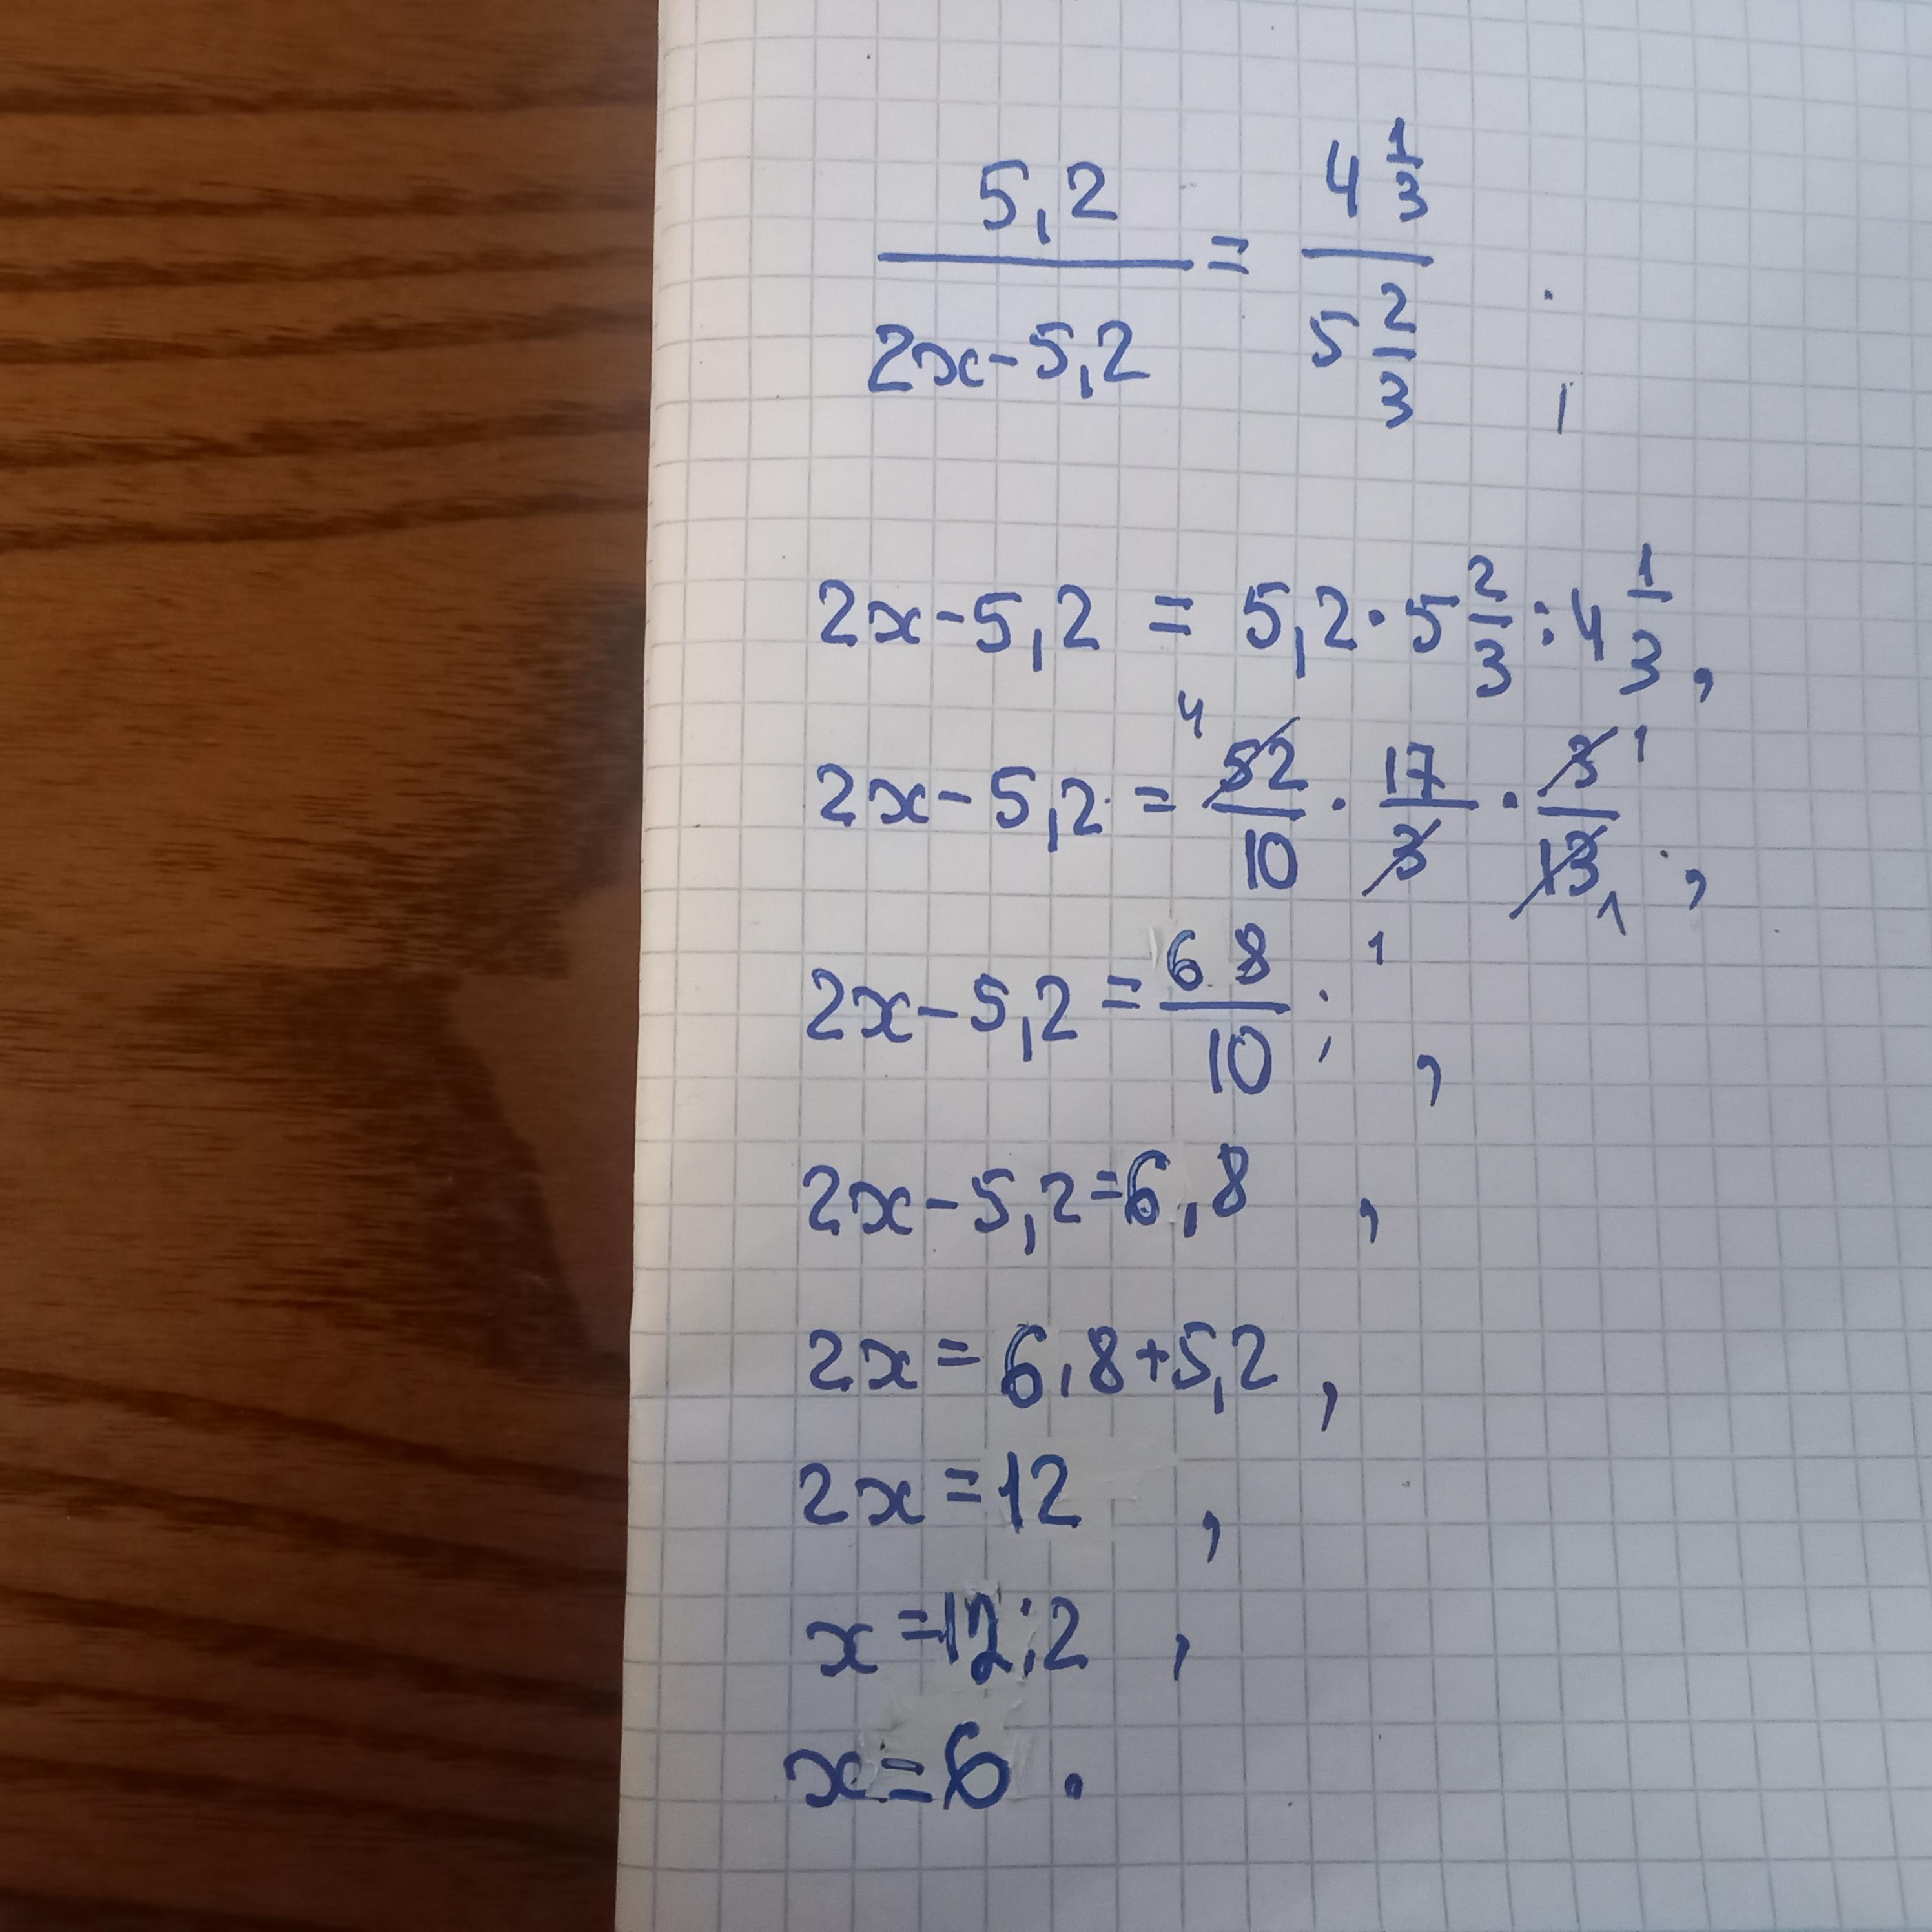 5,2/(2x-5,2) = 4 1/3 / 5 2/3 ;
2x-5,2 = 5,2·5 2/3 : 4 1/3 ,
2x-5,2 = 4 52/10 · 17/3 1 · 3/13 1 1 ,
2x-5,2 = 68/10 ; ,
2x-5,2=6,8 ,
2x=6,8+5,2 ,
2x=12 ,
x=12:2 ,
x=6 .